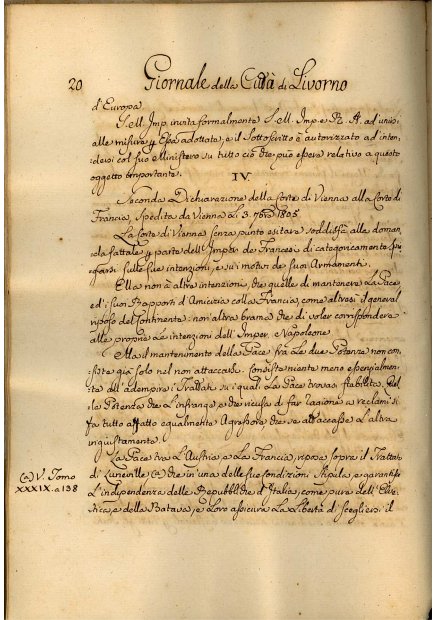 20 Giornale della Città di Livorno
d'Europa
S. M. Imp. invita formalmente S. M. Imp. e R. A. ad unirsi
alle misure p Essa adottate, e il Sottoscritto è autorizzato ad inten-
dersi col suo Ministero su tutto ciò che può essere relativo a questo
oggetto importante.
IV.
Seconda Dichiarazione della Corte di Vienna alla Corte di
Francia, Spedita da Vienna Li 3. 7bre 1805
La Corte di Vienna senza punto esitare soddisfà alla doman-
da fattale p parte dell'Impre de Francesi di categoricamente spie-
garsi sulle sue intenzioni, e sui motivi de suoi Armamenti.
Ella non à altre intenzioni, che quelle di mantenere La Pace
ed i suoi Rapporti d'Amicizia colla Francia, come altresì il general
riposo del Continente: non altra brama che di voler corrispondere
alle proprie Le intenzioni dell'Imper. Napoleone
Ma il mantenimento della Pace frà Le due Potenze non con-
siste già solo nel non attaccarsi. Consiste niente meno essenzialmen-
te all'adempire i Trattati su i quali La Pace trovasi stabilita. Quel-
la Potenza che L'infrange, e che ricusa di far ragione a reclami si
fa tutto affatto egualmente Agressora che se attaccasse L'altra
ingiustamente
La Pace tra L'Austria e La Francia, riposa sopra il Trattato
di Luneville (a) che in una delle sue condizioni Stipula, e garantisce
L'indipendenza delle Repubbliche d'Italia, come pure dell'Elve-
tica, e della Batava, e Loro assicura La Libertà di scegliersi il
(a) V. Tomo
XXXIX. a 138